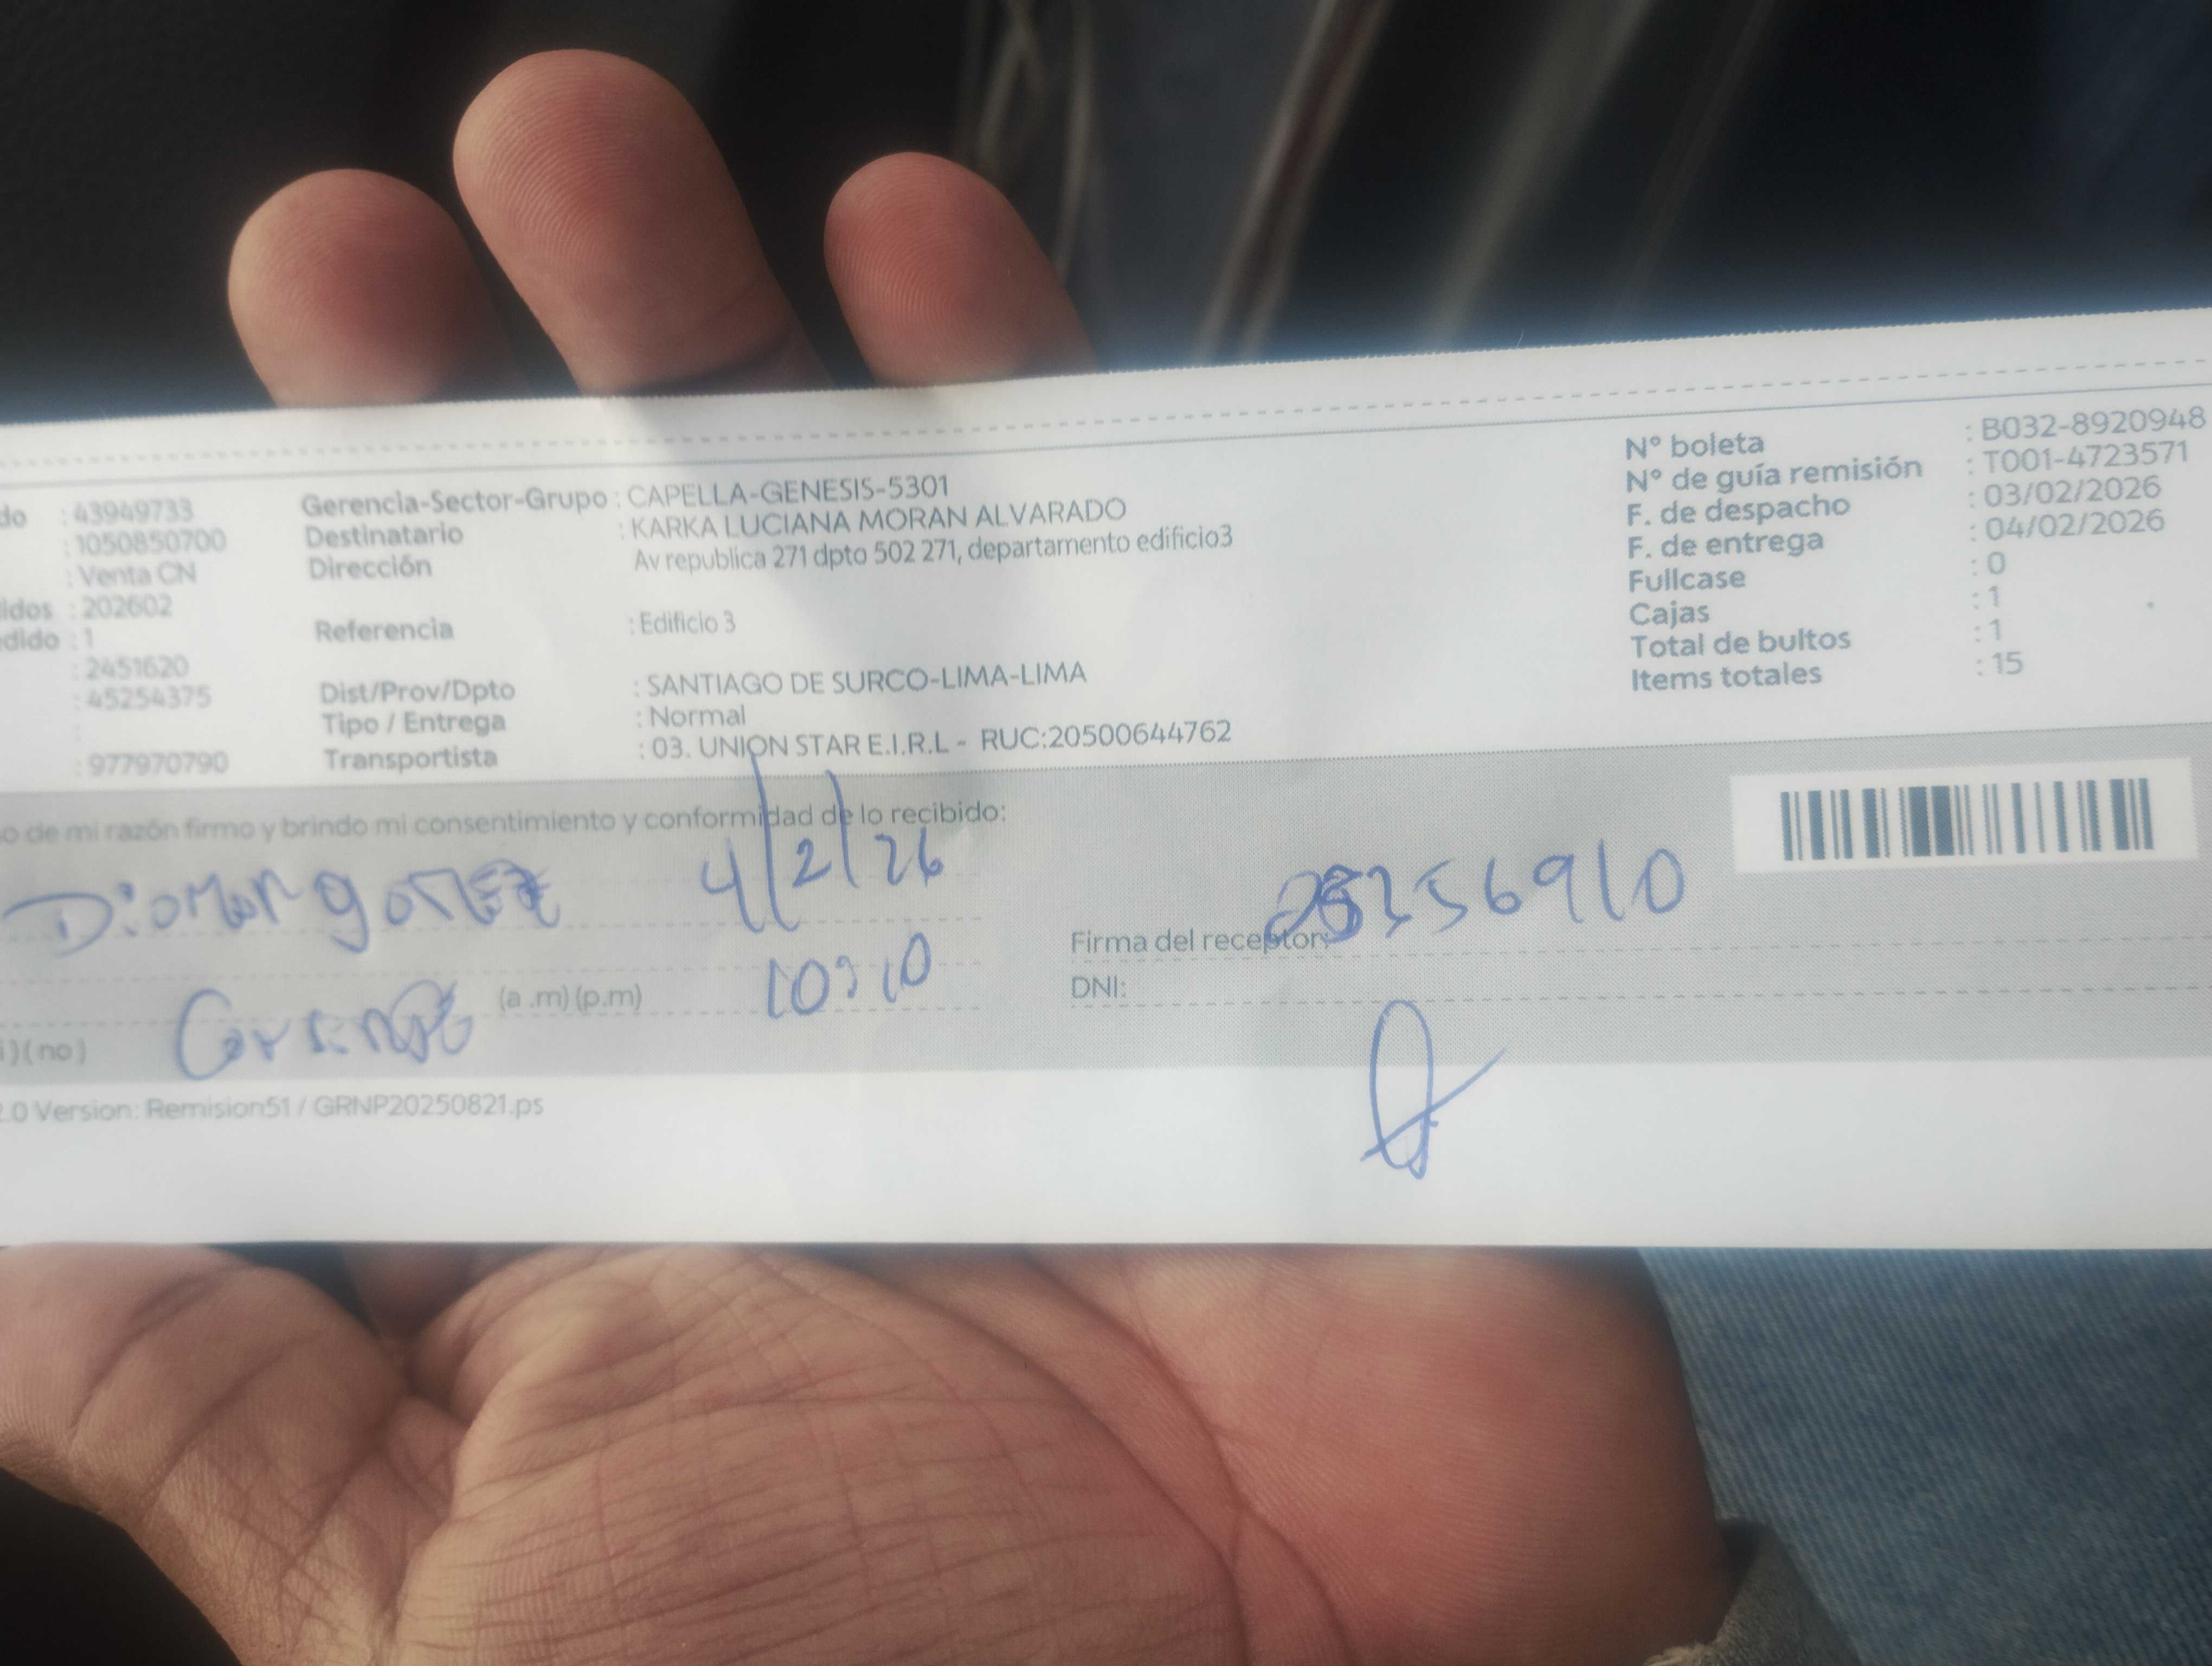 do : 43949733
: 1050850700
: Venta CN
idos : 202602
dido : 1
: 2451620
: 45254375
:
: 977970790
Gerencia-Sector-Grupo : CAPELLA-GENESIS-5301
Destinatario : KARKA LUCIANA MORAN ALVARADO
Dirección Av republica 271 dpto 502 271, departamento edificio3
Referencia : Edificio 3
Dist/Prov/Dpto : SANTIAGO DE SURCO-LIMA-LIMA
Tipo / Entrega : Normal
Transportista : 03. UNION STAR E.I.R.L - RUC:20500644762
N° boleta : B032-8920948
N° de guía remisión : T001-4723571
F. de despacho : 03/02/2026
F. de entrega : 04/02/2026
Fullcase : 0
Cajas : 1
Total de bultos : 1
Items totales : 15
o de mi razón firmo y brindo mi consentimiento y conformidad de lo recibido:
4/2/26
Firma del receptor:
(a .m) (p.m) 10:10
DNI:
i ) ( no )
2.0 Version: Remision51 / GRNP20250821.ps